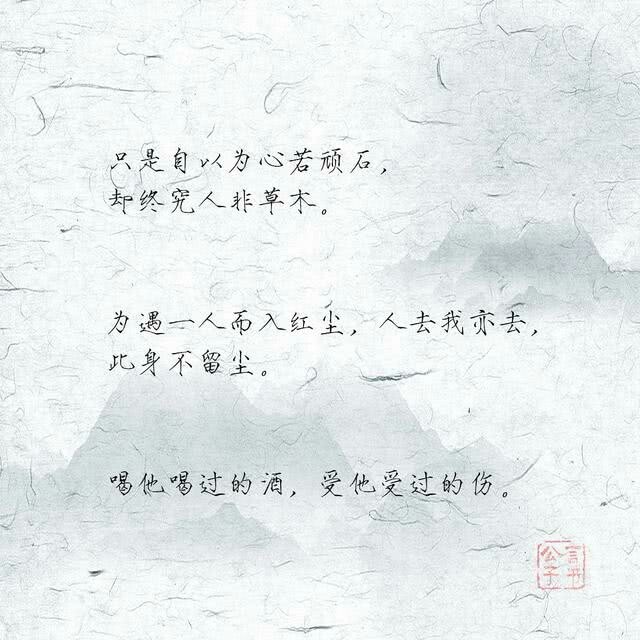 只是自以为心若顽石，
却终究人非草木。
为遇一人而入红尘，人去我亦去，
此身不留尘。
喝他喝过的酒，受他受过的伤。
言书
公子